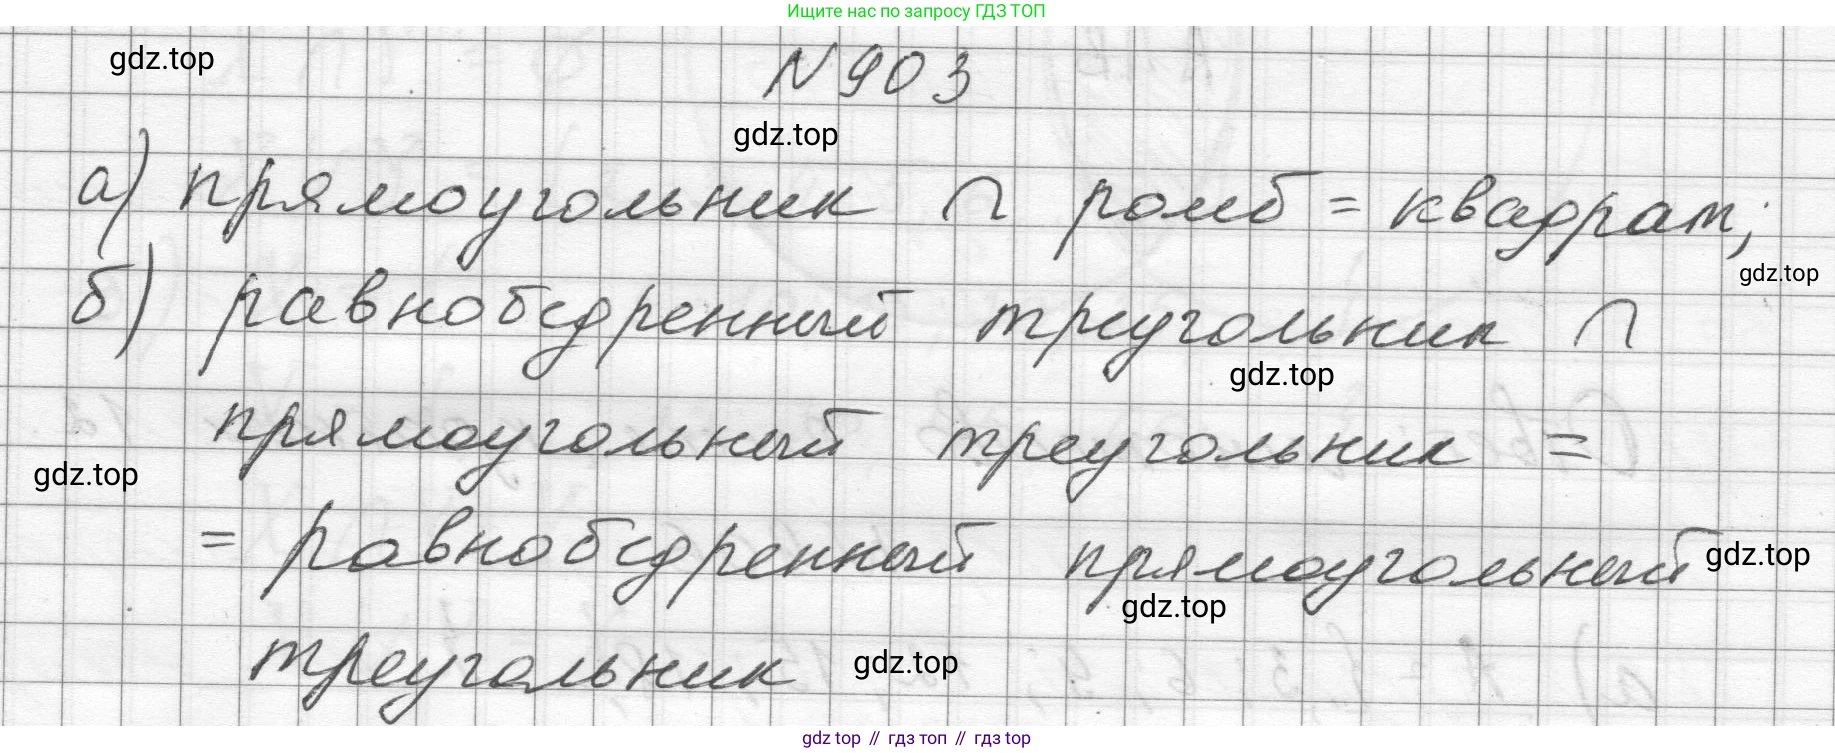 Ищите нас по запросу ГДЗ ТОП
gdz.top
N 903
gdz.top
а) прямоугольник ∩ ромб = квадрат;
gdz.top
б) равнобедренный треугольник ∩
gdz.top
прямоугольный треугольник =
gdz.top
= равнобедренный прямоугольный
gdz.top
gdz.top
треугольник
gdz.top
gdz top // гдз топ // гдз top